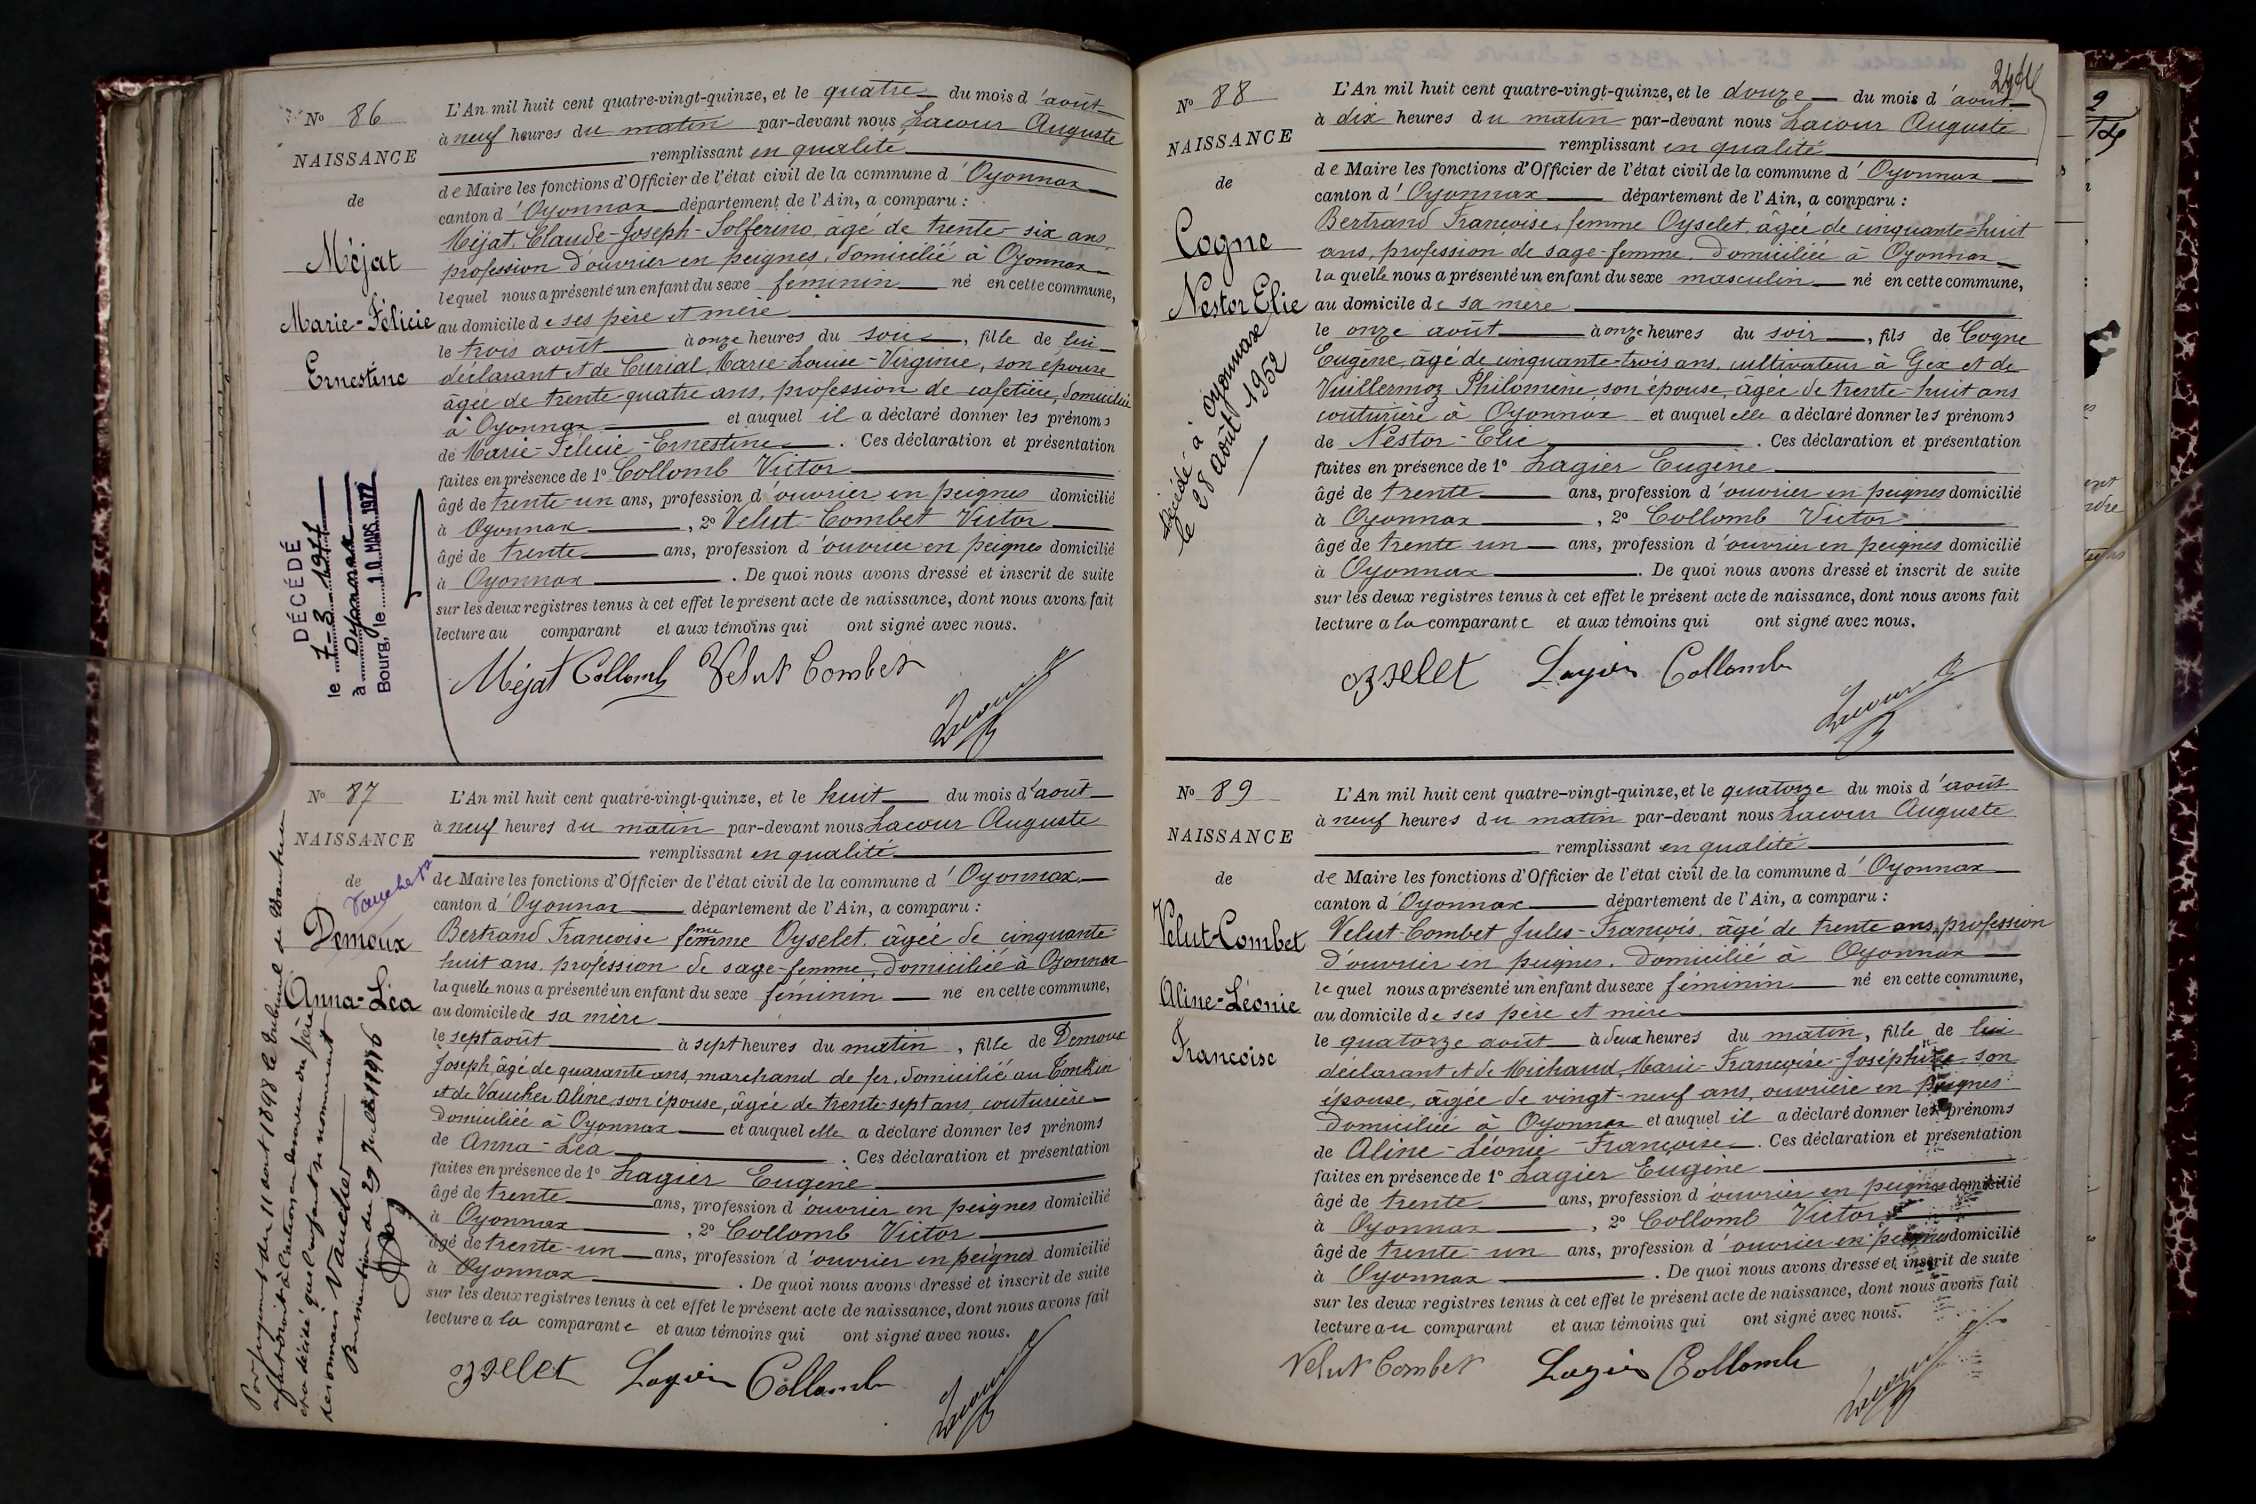 No 86
NAISSANCE
de
Méjat
Marie-Félicie
Ernestine
L'An mil huit cent quatre-vingt-quinze, et le quatre du mois d'août
à neuf heures du matin par-devant nous Lacour Auguste
remplissant en qualité
de Maire les fonctions d'Officier de l'état civil de la commune d'Oyonnax
canton d'Oyonnax département de l'Ain, a comparu :
Méjat, Claude-Joseph-Solferino, âgé de trente-six ans,
profession d'ouvrier en peignes, domicilié à Oyonnax
lequel nous a présenté un enfant du sexe féminin né en cette commune,
au domicile de ses père et mère
le trois août à onze heures du soir, fille de lui
déclarant et de Curial, Marie-Louise-Virginie, son épouse
âgée de trente-quatre ans, profession de cafetière, domiciliée
à Oyonnax et auquel il a déclaré donner les prénoms
de Marie-Félicie-Ernestine. Ces déclaration et présentation
faites en présence de 1o Collomb Victor
âgé de trente-un ans, profession d'ouvrier en peignes domicilié
à Oyonnax, 2o Velut-Combet Victor
âgé de trente ans, profession d'ouvrier en peignes domicilié
à Oyonnax. De quoi nous avons dressé et inscrit de suite
sur les deux registres tenus à cet effet le présent acte de naissance, dont nous avons fait
lecture au comparant et aux témoins qui ont signé avec nous.
Méjat Collomb Velut Combet
Lacour
DÉCÉDÉ
le 7 3 1977
à Oyonnax
Bourg, le 10 MARS 1977
No 87
NAISSANCE
de
Vaucher
Demoux
Anna-Léa
L'An mil huit cent quatre-vingt-quinze, et le huit du mois d'août
à neuf heures du matin par-devant nous Lacour Auguste
remplissant en qualité
de Maire les fonctions d'Officier de l'état civil de la commune d'Oyonnax
canton d'Oyonnax département de l'Ain, a comparu :
Bertrand Françoise femme Oyselet, âgée de cinquante-
huit ans, profession de sage-femme, domiciliée à Oyonnax
laquelle nous a présenté un enfant du sexe féminin né en cette commune,
au domicile de sa mère
le sept août à sept heures du matin, fille de Demoux
Joseph, âgé de quarante ans, marchand de fer, domicilié au Tonkin
et de Vaucher Aline, son épouse, âgée de trente-sept ans, couturière
domiciliée à Oyonnax et auquel elle a déclaré donner les prénoms
de Anna-Léa. Ces déclaration et présentation
faites en présence de 1o Lagier Eugène
âgé de trente ans, profession d'ouvrier en peignes domicilié
à Oyonnax, 2o Collomb Victor
âgé de trente-un ans, profession d'ouvrier en peignes domicilié
à Oyonnax. De quoi nous avons dressé et inscrit de suite
sur les deux registres tenus à cet effet le présent acte de naissance, dont nous avons fait
lecture a la comparante et aux témoins qui ont signé avec nous.
oyselet Lagier Collomb
Lacour
Par jugement du 11 aout 1898 le tribunal de Nantua
a fait droit à l'action en désaveu du père
et a décidé que l'enfant se nommerait
désormais Vaucher
Par mention du 29 Juillet 1916
No 88
NAISSANCE
de
Cogne
Nestor Elie
Décédé à Oyonnax
le 28 août 1952
L'An mil huit cent quatre-vingt-quinze, et le douze du mois d'août
à dix heures du matin par-devant nous Lacour Auguste
remplissant en qualité
de Maire les fonctions d'Officier de l'état civil de la commune d'Oyonnax
canton d'Oyonnax département de l'Ain, a comparu :
Bertrand Françoise, femme Oyselet, âgée de cinquante-huit
ans, profession de sage-femme, domiciliée à Oyonnax
laquelle nous a présenté un enfant du sexe masculin né en cette commune,
au domicile de sa mère
le onze août à onze heures du soir, fils de Cogne
Eugène, âgé de cinquante-trois ans, cultivateur à Gex et de
Vuillermoz Philomène, son épouse, âgée de trente-huit ans
couturière à Oyonnax et auquel elle a déclaré donner les prénoms
de Nestor-Elie. Ces déclaration et présentation
faites en présence de 1o Lagier Eugène
âgé de trente ans, profession d'ouvrier en peignes domicilié
à Oyonnax, 2o Collomb Victor
âgé de trente un ans, profession d'ouvrier en peignes domicilié
à Oyonnax. De quoi nous avons dressé et inscrit de suite
sur les deux registres tenus à cet effet le présent acte de naissance, dont nous avons fait
lecture a la comparante et aux témoins qui ont signé avec nous.
oyselet Lagier Collomb
Lacour
No 89
NAISSANCE
de
Velut-Combet
Aline-Léonie
Françoise
L'An mil huit cent quatre-vingt-quinze, et le quatorze du mois d'août
à neuf heures du matin par-devant nous Lacour Auguste
remplissant en qualité
de Maire les fonctions d'Officier de l'état civil de la commune d'Oyonnax
canton d'Oyonnax département de l'Ain, a comparu :
Velut-Combet Jules-François, âgé de trente ans, profession
d'ouvrier en peignes, domicilié à Oyonnax
lequel nous a présenté un enfant du sexe féminin né en cette commune,
au domicile de ses père et mère
le quatorze août à deux heures du matin, fille de lui
déclarant et de Michaud, Marie-Françoise-Joséphine son
épouse, âgée de vingt-neuf ans, ouvrière en peignes
domiciliée à Oyonnax et auquel il a déclaré donner les prénoms
de Aline-Léonie-Françoise. Ces déclaration et présentation
faites en présence de 1o Lagier Eugène
âgé de trente ans, profession d'ouvrier en peignes domicilié
à Oyonnax, 2o Collomb Victor
âgé de trente-un ans, profession d'ouvrier en peignes domicilié
à Oyonnax. De quoi nous avons dressé et inscrit de suite
sur les deux registres tenus à cet effet le présent acte de naissance, dont nous avons fait
lecture au comparant et aux témoins qui ont signé avec nous.
Velut Combet Lagier Collomb
Lacour